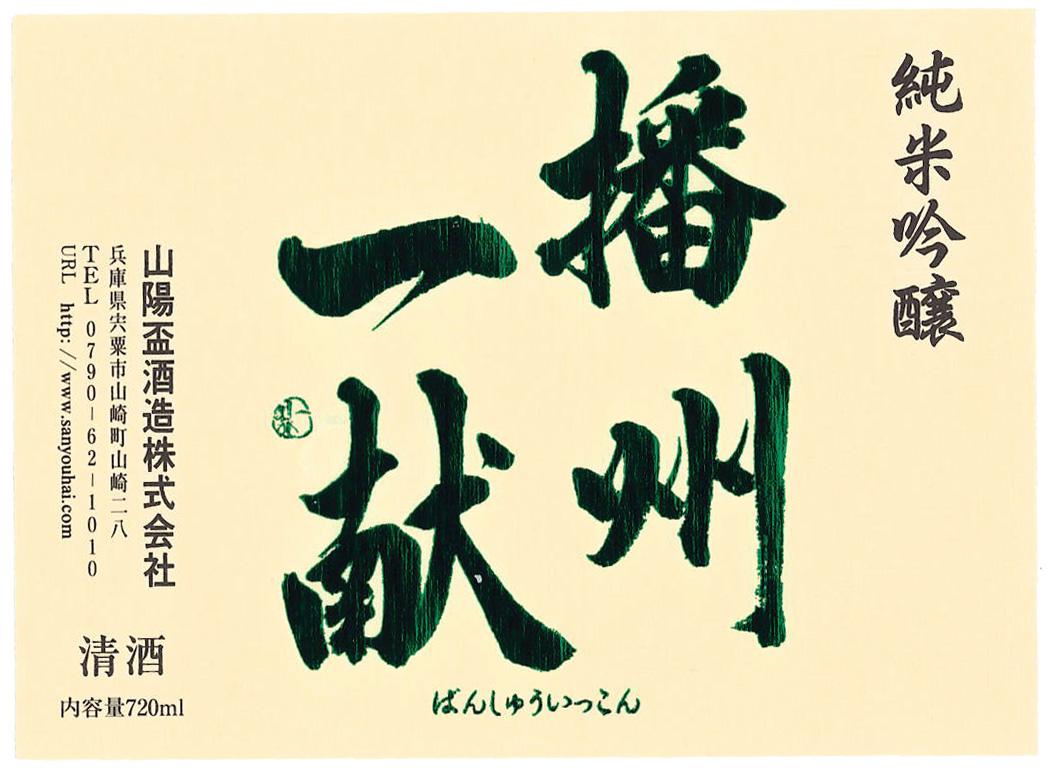 純米吟醸
播州
一献
ばんしゅういっこん
山陽盃酒造株式会社
兵庫県宍粟市山崎町山崎二八
TEL 0790-62-1010
URL http://www.sanyouhai.com
清酒
内容量720ml